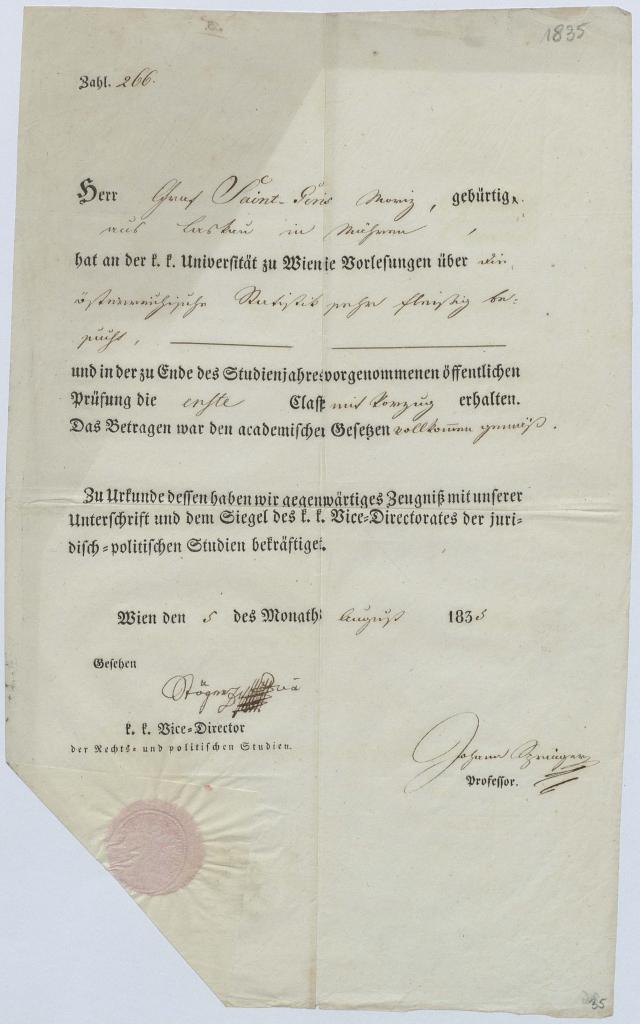 1835
Zahl. 266.
Herr Graf Saint-Genis Moriz, gebürtig
aus Laskau in Mähren,
hat an der k. k. Universität zu Wien die Vorlesungen über die
österreichische Statistik sehr fleißig be-
sucht,
und in der zu Ende des Studienjahres vorgenommenen öffentlichen
Prüfung die erste Classe mit Vorzug erhalten.
Das Betragen war den academischen Gesetzen vollkommen gemäß.
Zu Urkunde dessen haben wir gegenwärtiges Zeugniß mit unserer
Unterschrift und dem Siegel des k. k. Vice-Directorates der juri-
disch-politischen Studien bekräftiget.
Wien den 5 des Monaths August 1835
Gesehen
Stöger
k. k. Vice-Director
der Rechts- und politischen Studien.
Johann Springer
Professor.
35